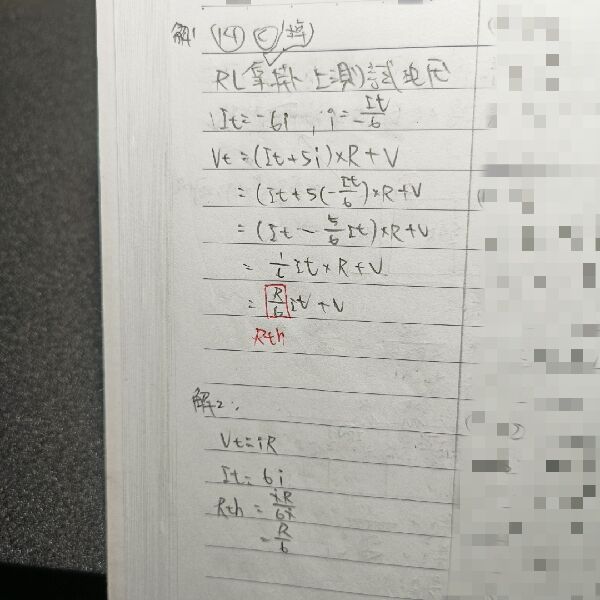 解1 (14) (C)
RL拿掉 上測試電压
It=-6i , i=-It/6
Vt=(It+5i)×R+V
=(It+5(-It/6)×R+V
=(It-5/6It)×R+V
=1/6It×R+V
=R/6It+V
Rth
解2:
Vt=iR
It=6i
Rth=iR/6i
=R/6